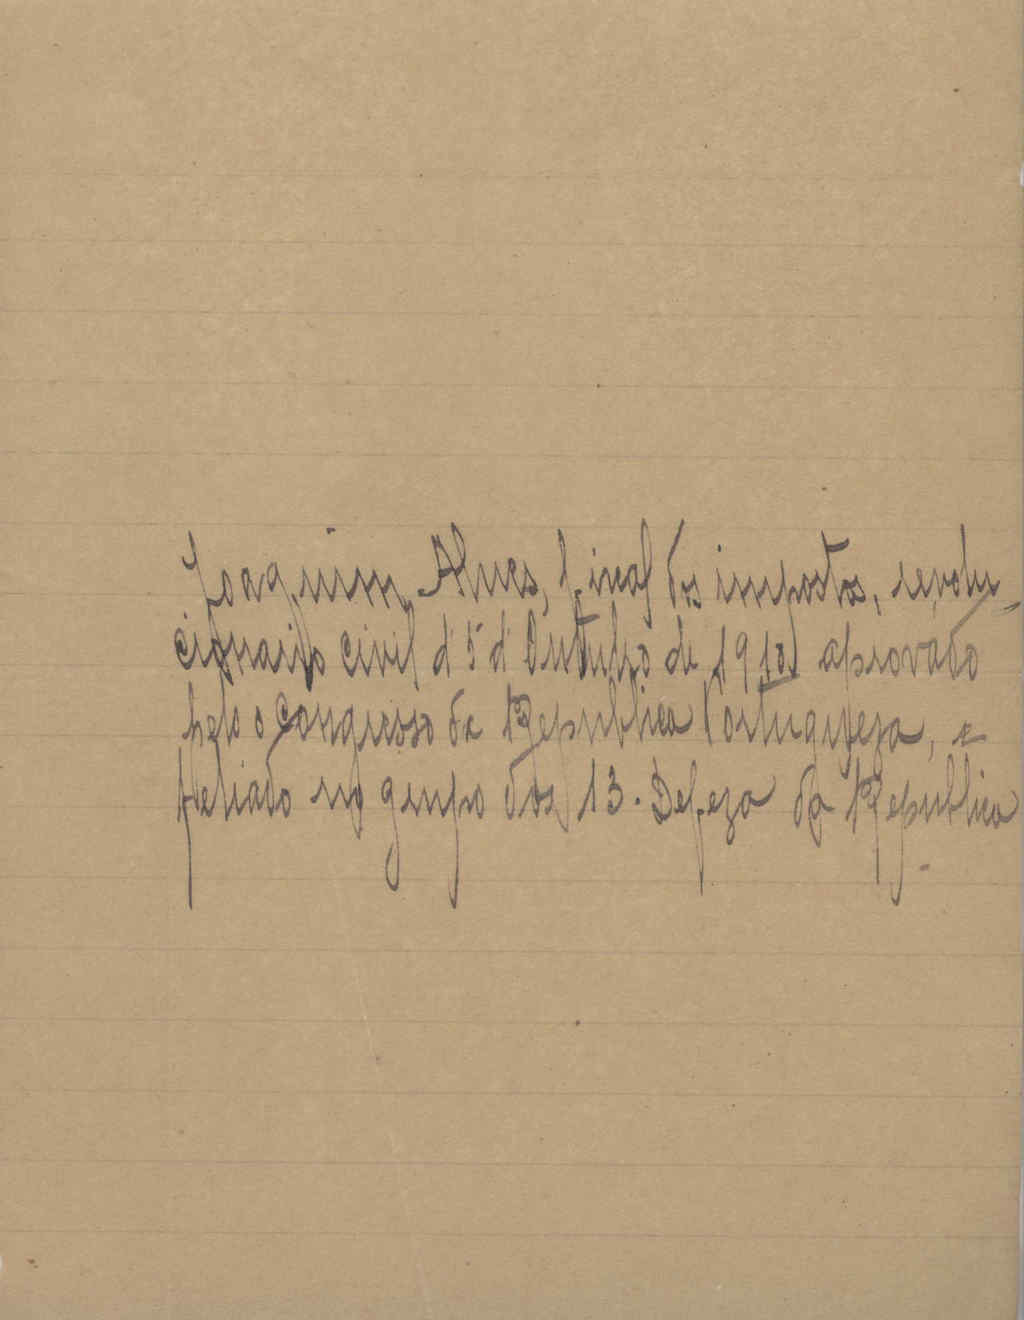 Joaquim Alves, fiscal dos impostos, revolu-
cionario civil d'5 d'Outubro de 1910 aprovado
pelo o Congresso da Republica Portugueza, e
feliado no grupo dos 13. Defeza da Republica